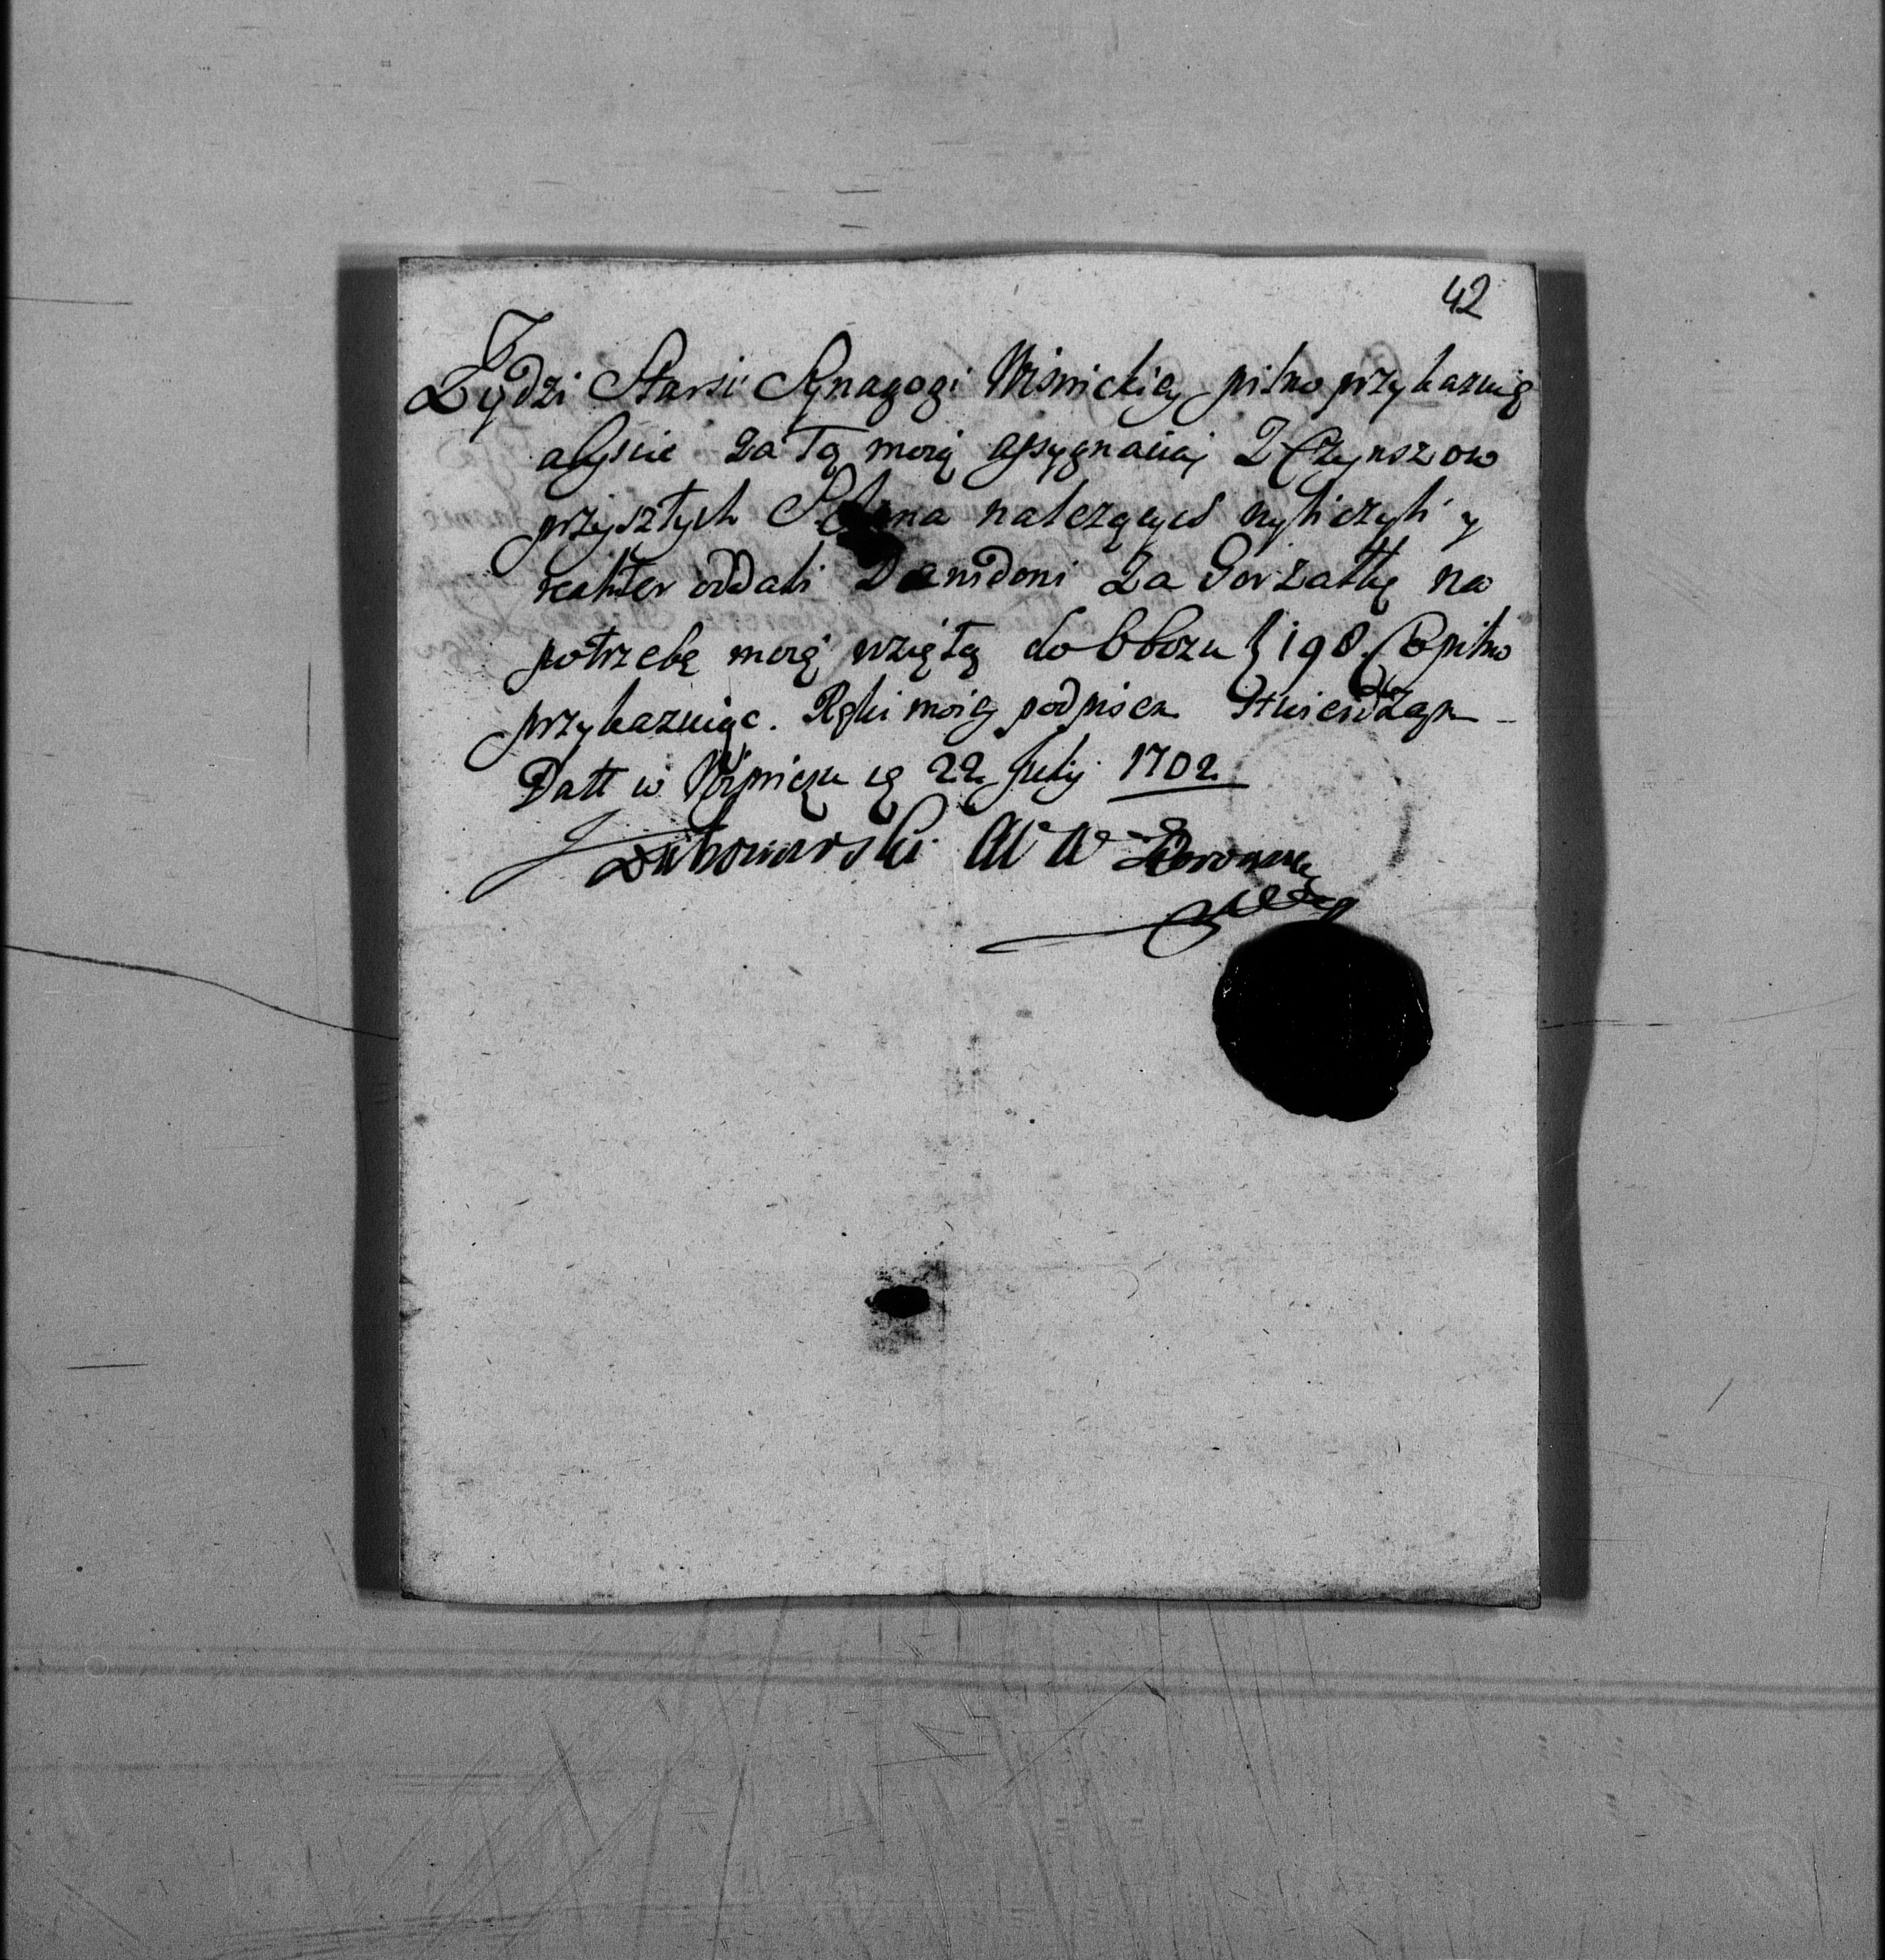 42
Żydzi Starsi Synagogi Wiśnickiey pilno przykazuię
abyscie za tą moią assygnacią z Czynszow
przyszłych należących wyliczyli y
realiter oddali Dawidowi za Gorzałkę na
potrzebę moię wziętą do Obozu 198. Co pilno
przykazuiąc. Ręki moiey podpisem stwierdzam
Datt w Wiśniczu 22 July 1702
Lubomirski